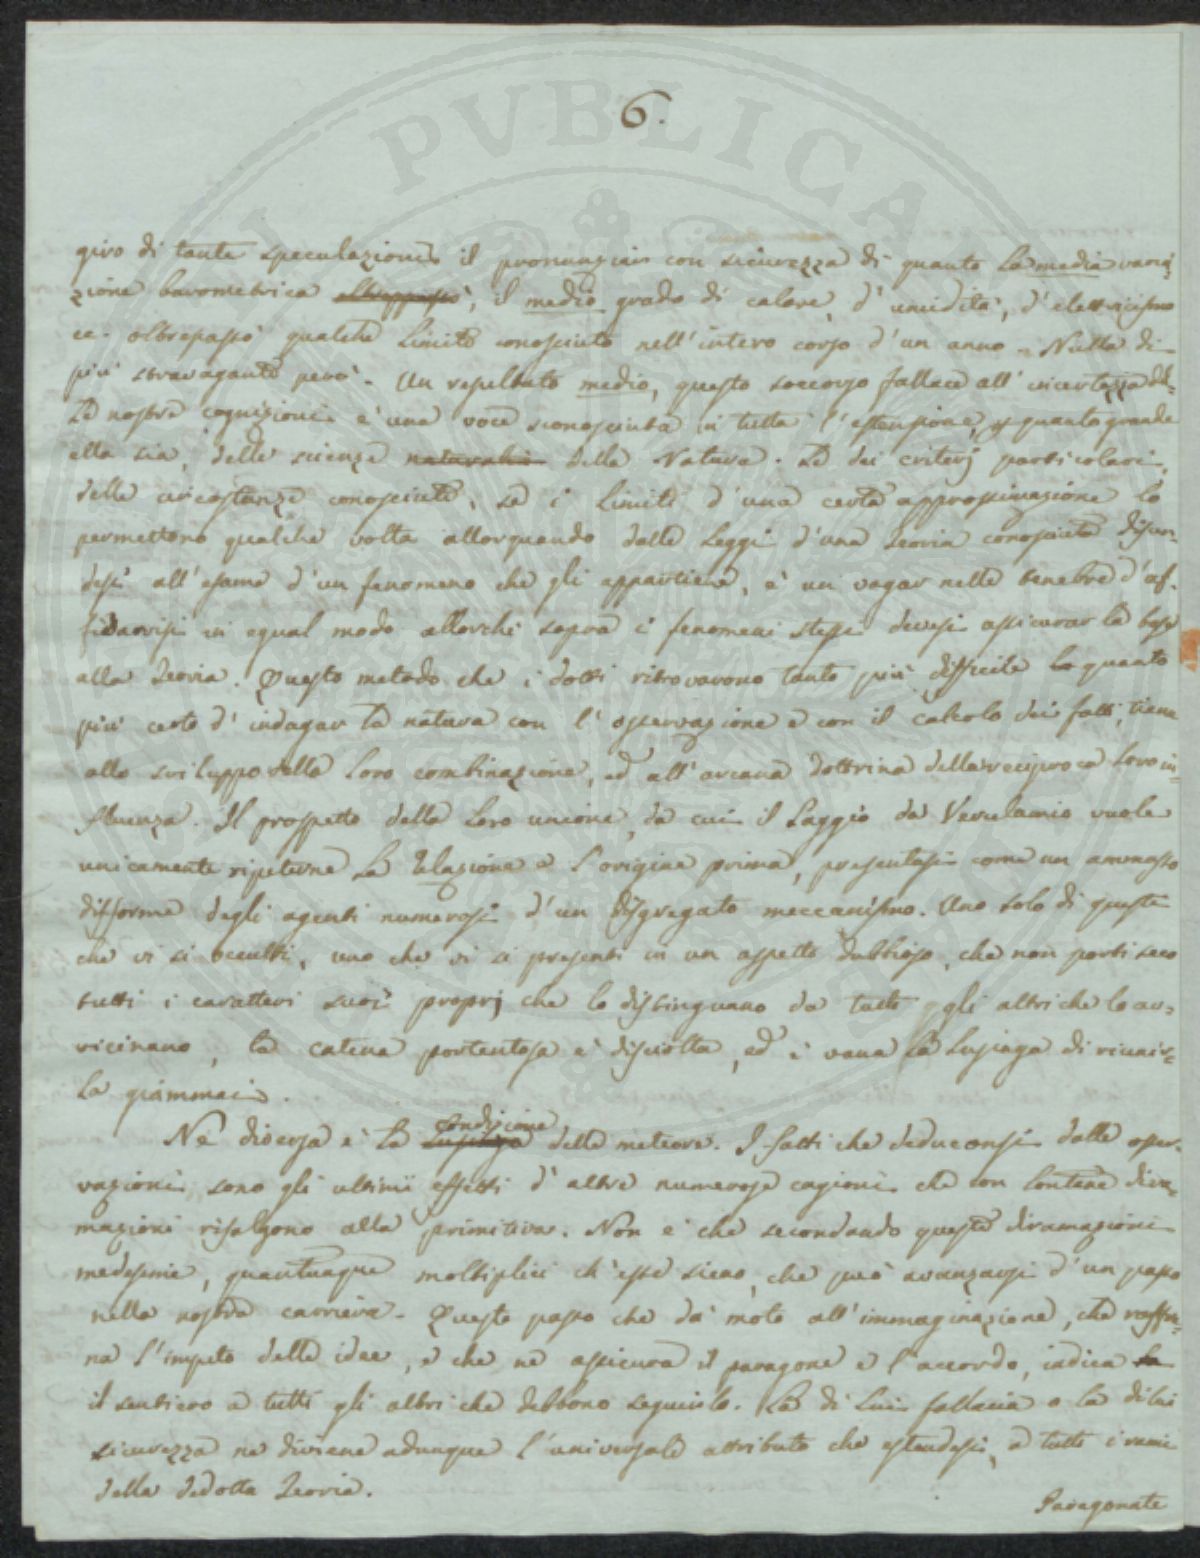 6.
giro di tante speculazioni il pronunziar con sicurezza di quanto la media varia-
zione barometrica oltrepassò, il medio grado di calore, d'umidità, d'elettricismo
ec. oltrepassò qualche limite conosciuto nell'intero corso d'un anno. Nulla di
più stravagante però. Un resultato medio, questo soccorso fallace all'incertezza del-
le nostre cognizioni è una voce sconosciuta in tutta l'estensione, quanto grande
ella sia, delle scienze naturali della Natura. Se dei criterj particolari,
delle circostanze conosciute, se i limiti d'una certa approssimazione lo
permettono qualche volta allorquando dalle Leggi d'una Teoria conosciuta discen-
desi all'esame d'un fenomeno che gli appartiene, è un vagar nelle tenebre d'af-
fidarvisi in egual modo allorchè sopra i fenomeni stessi devesi assicurar la base
alla Teoria. Questo metodo che i dotti ritrovarono tanto più difficile lo quanto
più certo d'indagar la natura con l'osservazione e con il calcolo dei fatti, tiene
allo sviluppo della loro combinazione, ed all'arcana dottrina della reciproca loro in-
fluenza. Il prospetto della loro unione, da cui il Saggio da Verulamio vuole
unicamente ripeterne la relazione e l'origine prima, presentasi come un ammasso
difforme degli agenti numerosi d'un disgregato meccanismo. Uno solo di questi
che vi si occulti, uno che vi si presenti in un aspetto dubbioso, che non porti seco
tutti i caratteri suoi proprj che lo distinguano da tutti gli altri che lo av-
vicinano, la catena portentosa è disciolta, ed è vana la lusinga di riunir-
la giammai.
Nè diversa è la lusinga condizione delle meteore. I fatti che deduconsi dalle osser-
vazioni sono gli ultimi effetti d'altre numerose cagioni che con lontane dira-
mazioni risalgono alla primitiva. Non è che secondando queste diramazioni
medesime, quantunque moltiplici ch'esse sieno, che può avanzarsi d'un passo
nella nostra carriera. Questo passo che dà moto all'immaginazione, che raffre-
na l'impeto delle idee, e che ne assicura il paragone e l'accordo, indica la
il sentiero a tutti gli altri che debbono seguirlo. La di lui fallacia o la di lui
sicurezza ne diviene adunque l'universale attributo che estendesi, a tutti i rami
della dedotta Teoria.
Paragonate